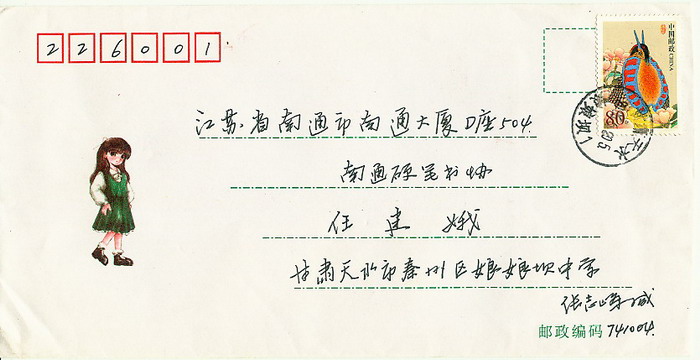 226001
中国邮政
CHINA
80
江苏省南通市南通大厦D座504
南通硬笔书协
任建娥
甘肃天水市秦州区娘娘坝中学
张志峰 缄
邮政编码 741004